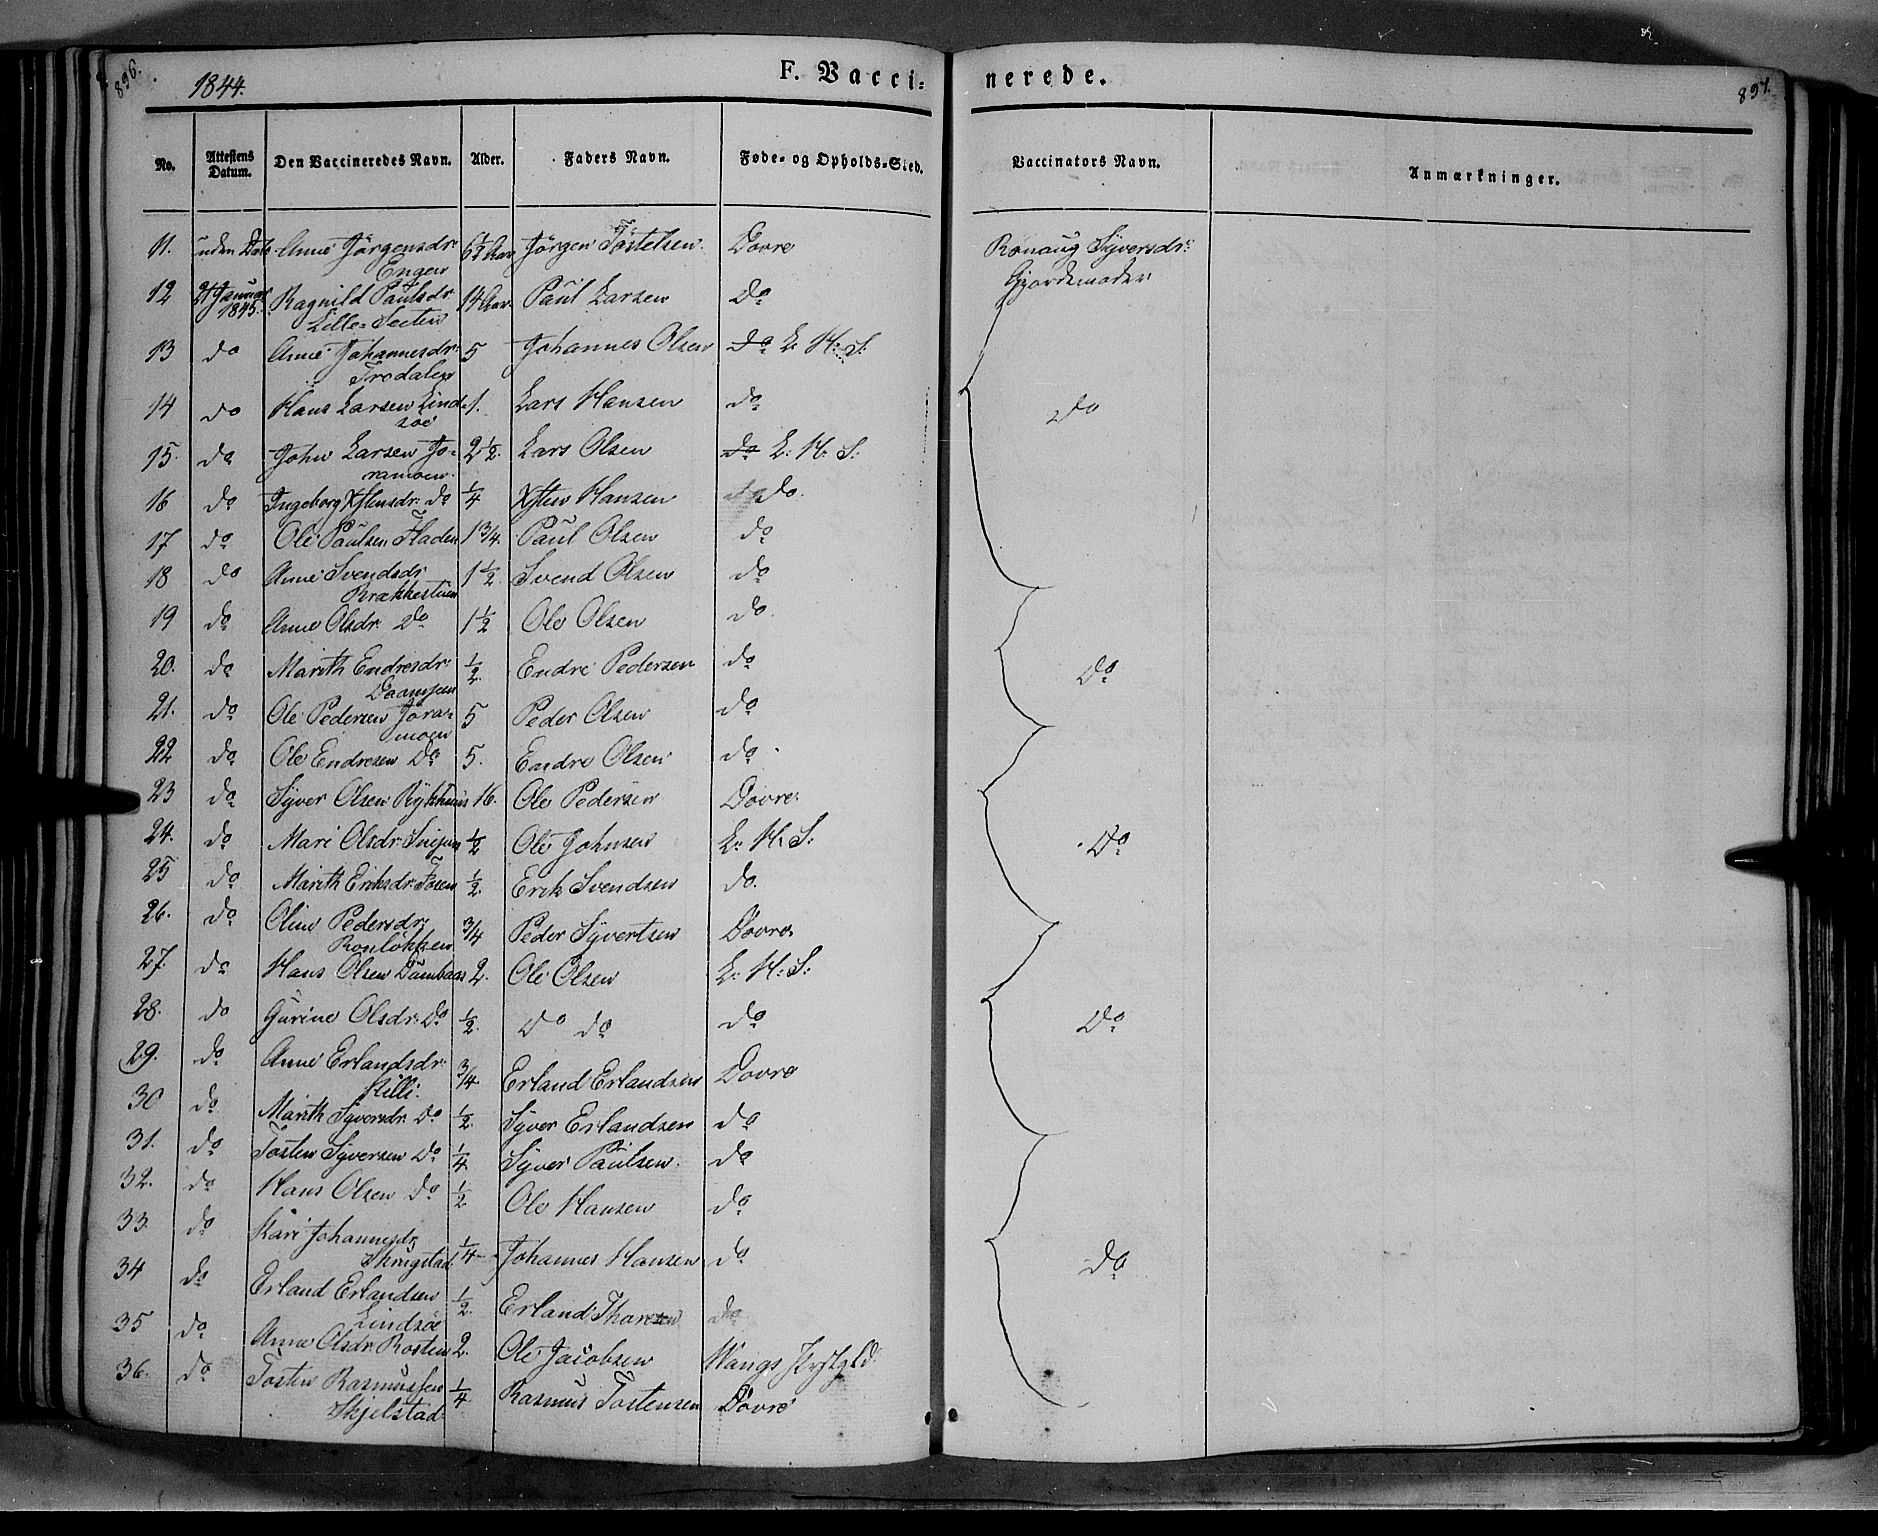 896.
1844.
F. Vacci=
nerede.
897.
No.
Attestens Datum.
Den Vaccineredes Navn.
Alder.
Faders Navn.
Føde- og Opholds-Sted.
Vaccinators Navn.
Anmærkninger.
11. uden Dato Anne Jörgensdr: 6½ Aar Jörgen Tostelsen. Dovre Ronaug Syversdr:
Engen Gjordemoder
12 21 Januar Ragnild Paulsdr 14 Aar Paul Larsen Do
1845. Lille=Seeten
13 do Anne Johannesdr: 5 Johannes Olsen Do L: H: S:
Trodalen
14 do Hans Larsen Lind= 1. Lars Hansen do Do
söe
15. do John Larsen Jo= 2½. Lars Olsen do L: H: S:
ramoen.
16 do Ingeborg Xstensdr: do ¼ Xsten Hansen do.
17 do Ole Paulsen Fladen 1¾. Paul Olsen do
18 do Anne Svendsdr 1½. Svend Olsen do
Brækkestuen
19 do Anne Olsdr Do 1½ Ole Olsen do.
20. do Marith Endresdr: ½. Endre Pedersen do Do
21. do Ole Pedersen Jora= 5 Peder Olsen do
moen
22 do Ole Endresen Do 5. Endre Olsen do
23 do Syver Olsen Rykhuus 16. Ole Pedersen Dovre.
24. do Mari Olsdr: ½ Ole Johnsen L: H: S: Do
25 do Marith Eriksdr: ½. Erik Svendsen do.
26. do Oline Pedersdr: ¾ Peder Syvertsen Dovre
27. do Hans Olsen Dombaas 2. Ole Olsen L: H: S:
28. do Gurine Olsdr: Do ½. Do do do Do
29. do Anne Erlandsdr: ¾. Erland Erlandsen Dovre
Killi.
30 do Marith Syversdr: Do ½. Syver Erlandsen do
31. do Tosten Syversen Do ¼ Syver Paulsen. do
32. do Hans Olsen do ½ Ole Hansen do
33. do Kari Johannesdr ¼ Johannes Hansen do Do
34 do Erland Erlandsen ½. Erland Thoresen do
Lindsöe
35 do Anne Olsdr: Rosten 2. Ole Jacobsen Vangs Prstgld.
36. do Tosten Rasmussen ¼ Rasmus Tostensen Dovre
Skjelstad